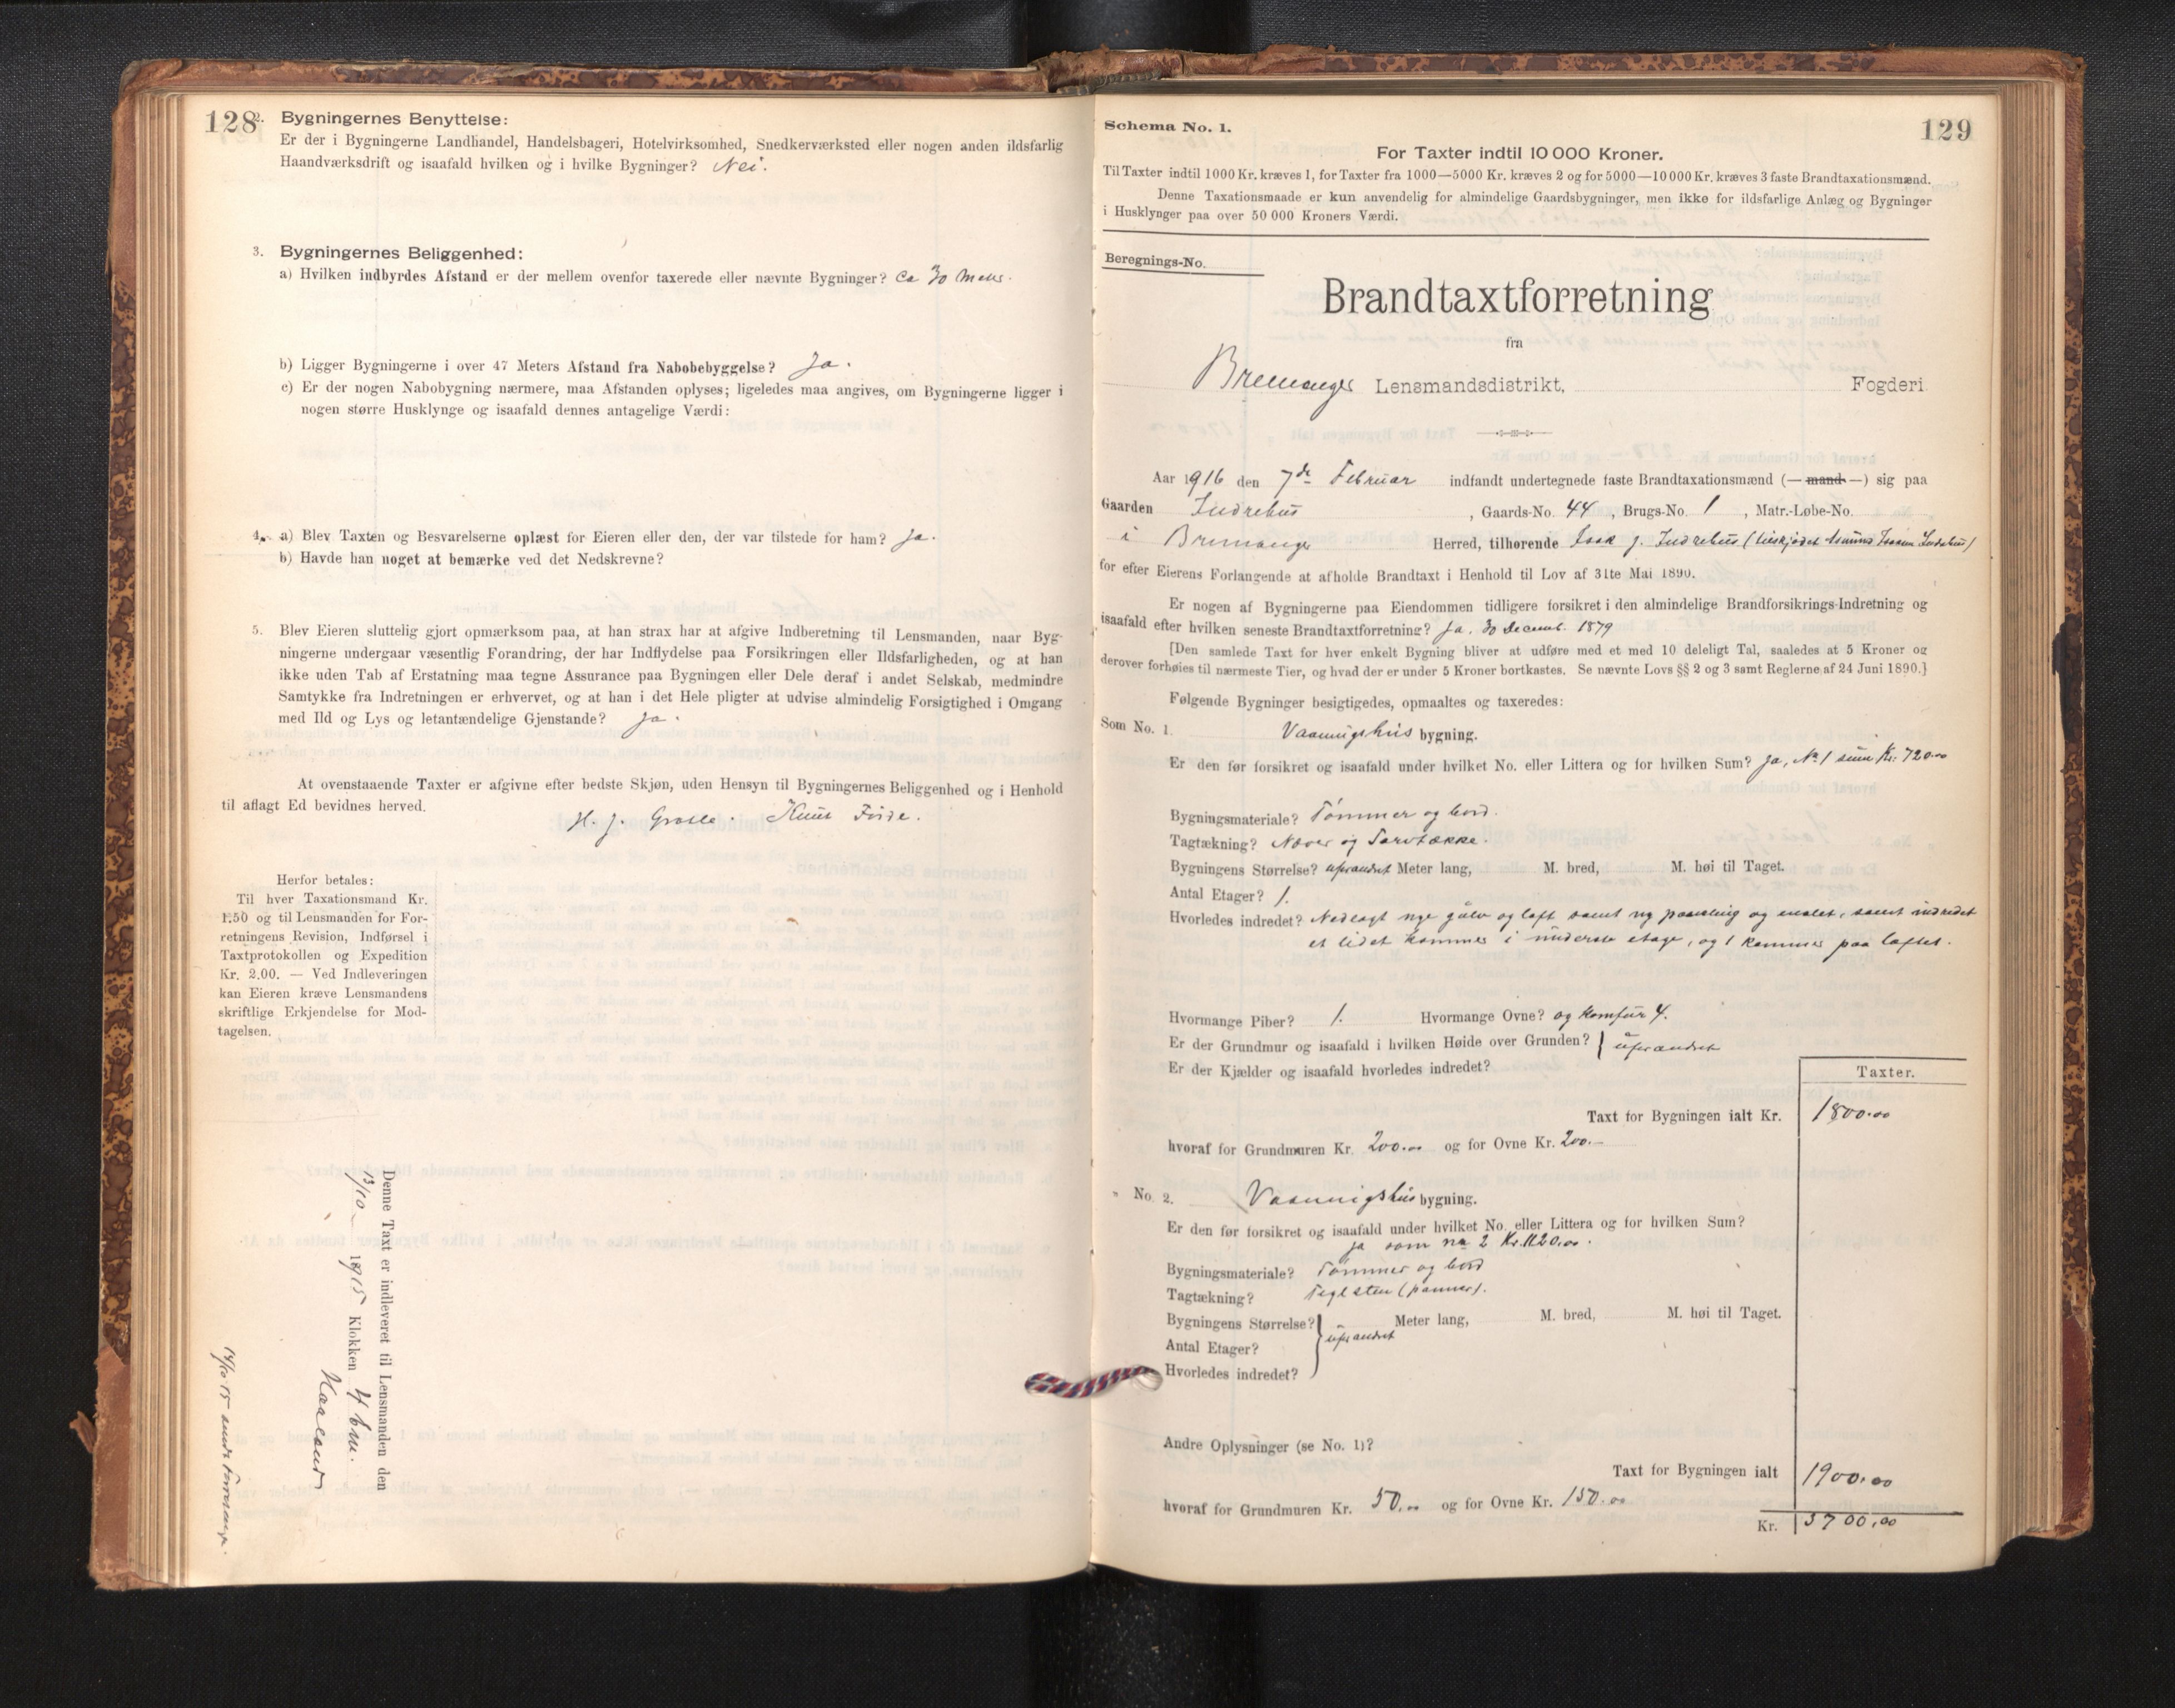 128
2. Bygningernes Benyttelse:
Er der i Bygningerne Landhandel, Handelsbageri, Hotelvirksomhed, Snedkerværksted eller nogen anden ildsfarlig
Haandværksdrift og isaafald hvilken og i hvilke Bygninger? Nei.
3. Bygningernes Beliggenhed:
a) Hvilken indbyrdes Afstand er der mellem ovenfor taxerede eller nævnte Bygninger? Ca 30 Meter.
b) Ligger Bygningerne i over 47 Meters Afstand fra Nabobebyggelse? Ja.
c) Er der nogen Nabobygning nærmere, maa Afstanden oplyses; ligeledes maa angives, om Bygningerne ligger i
nogen større Husklynge og isaafald dennes antagelige Værdi:
4. a) Blev Taxten og Besvarelserne oplæst for Eieren eller den, der var tilstede for ham? Ja.
b) Havde han noget at bemærke ved det Nedskrevne?
5. Blev Eieren sluttelig gjort opmærksom paa, at han strax har at afgive Indberetning til Lensmanden, naar Byg-
ningerne undergaar væsentlig Forandring, der har Indflydelse paa Forsikringen eller Ildsfarligheden, og at han
ikke uden Tab af Erstatning maa tegne Assurance paa Bygningen eller Dele deraf i andet Selskab, medmindre
Samtykke fra Indretningen er erhvervet, og at han i det Hele pligter at udvise almindelig Forsigtighed i Omgang
med Ild og Lys og letantændelige Gjenstande? Ja.
At ovenstaaende Taxter er afgivne efter bedste Skjøn, uden Hensyn til Bygningernes Beliggenhed og i Henhold
til aflagt Ed bevidnes herved.
H. J. Grotle. Knut Førde.
Herfor betales:
Til hver Taxationsmand Kr.
1.50 og til Lensmanden for For-
retningens Revision, Indførsel i
Taxtprotokollen og Expedition
Kr. 2.00. — Ved Indleveringen
kan Eieren kræve Lensmandens
skriftlige Erkjendelse for Mod-
tagelsen.
Denne Taxt er indleveret til Lensmanden den
13/10 1915 Klokken 4 em.
Haaland
14/10 15 sendt
129
Schema No. 1.
For Taxter indtil 10 000 Kroner.
Til Taxter indtil 1000 Kr. kræves 1, for Taxter fra 1000—5000 Kr. kræves 2 og for 5000—10 000 Kr. kræves 3 faste Brandtaxationsmænd.
Denne Taxationsmaade er kun anvendelig for almindelige Gaardsbygninger, men ikke for ildsfarlige Anlæg og Bygninger
i Husklynger paa over 50 000 Kroners Værdi.
Beregnings-No.
Brandtaxtforretning
fra
Bremanger Lensmandsdistrikt, Fogderi
Aar 1916 den 7de Februar indfandt undertegnede faste Brandtaxationsmænd (—mand—) sig paa
Gaarden Indrehus, Gaards-No. 44, Brugs-No. 1, Matr.-Løbe-No.
i Bremanger Herred, tilhørende Isak J. Indrehus (tilskjødet Indrehus)
for efter Eierens Forlangende at afholde Brandtaxt i Henhold til Lov af 31te Mai 1890.
Er nogen af Bygningerne paa Eiendommen tidligere forsikret i den almindelige Brandforsikrings-Indretning og
isaafald efter hvilken seneste Brandtaxtforretning? Ja. 30 Decemb. 1879
[Den samlede Taxt for hver enkelt Bygning bliver at udføre med et med 10 deleligt Tal, saaledes at 5 Kroner og
derover forhøies til nærmeste Tier, og hvad der er under 5 Kroner bortkastes. Se nævnte Lovs §§ 2 og 3 samt Reglerne af 24 Juni 1890.]
Følgende Bygninger besigtigedes, opmaaltes og taxeredes:
Som No. 1. Vaaningshus bygning.
Er den før forsikret og isaafald under hvilket No. eller Littera og for hvilken Sum? Ja, No 1 sum Kr. 720.00
Bygningsmateriale? Tømmer og bord.
Tagtækning? Næver og Torvtække.
Bygningens Størrelse? uforandret Meter lang, M. bred, M. høi til Taget.
Antal Etager? 1.
Hvorledes indredet? Nedlagt nye gulv og loft samt ny paneling og malet, samt indredet
et lidet kammer i underste etage, og 1 kammer paa loftet.
Hvormange Piber? 1. Hvormange Ovne? og Komfur 4.
Er der Grundmur og isaafald i hvilken Høide over Grunden? } uforandret
Er der Kjælder og isaafald hvorledes indredet?
Taxter.
Taxt for Bygningen ialt Kr. 1800.00
hvoraf for Grundmuren Kr. 200.00 og for Ovne Kr. 200.—
" No. 2. Vaaningshus bygning.
Er den før forsikret og isaafald under hvilket No. eller Littera og for hvilken Sum?
Ja som No 2 Kr. 1120.00.
Bygningsmateriale? Tømmer og bord
Tagtækning? Teglsten (panner).
Bygningens Størrelse? } uforandret Meter lang, M. bred, M. høi til Taget.
Antal Etager?
Hvorledes indredet?
Andre Oplysninger (se No. 1)?
Taxt for Bygningen ialt 1900.00
hvoraf for Grundmuren Kr. 50.00 og for Ovne Kr. 150.00
Kr. 3700,00